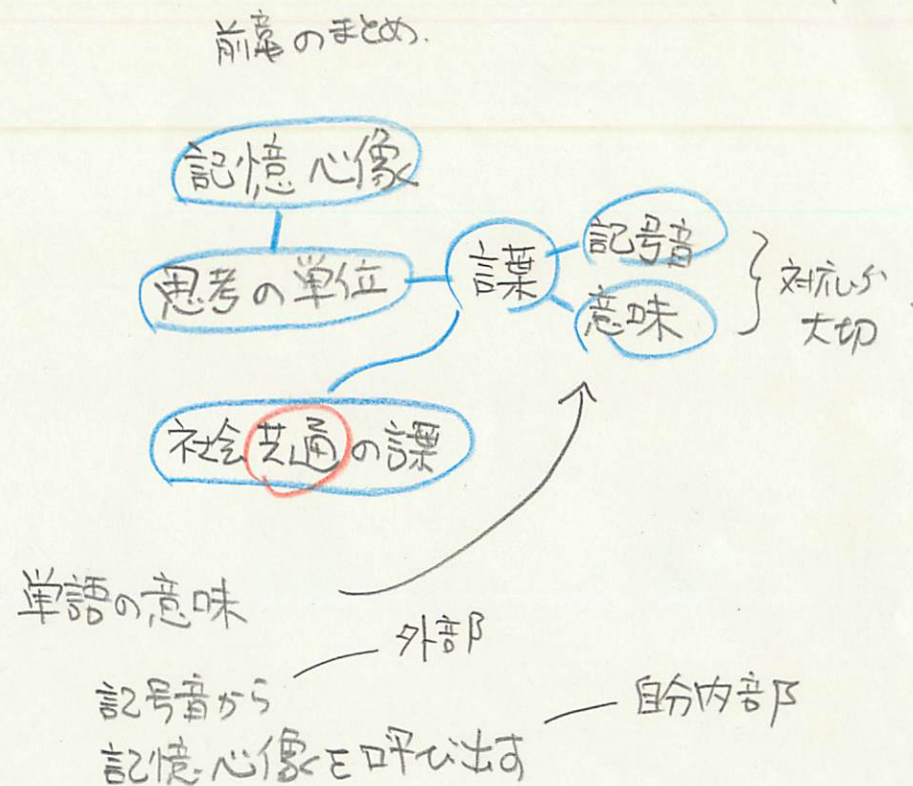 前章のまとめ.
記憶 心像
思考の単位
言葉
記号音
意味
対応が
大切
社会共通の言葉
単語の意味
外部
記号音から
自分内部
記憶心像を呼び出す